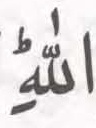 اللّٰهِؕ